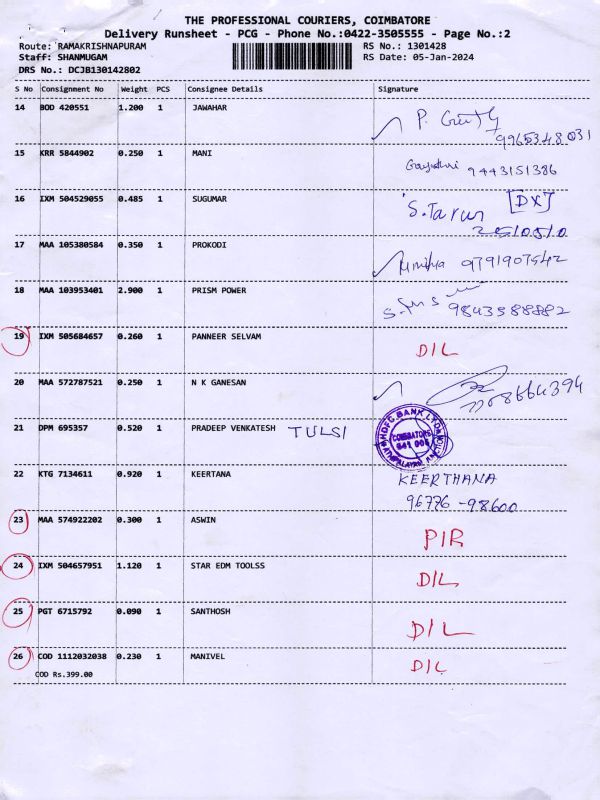 THE PROFESSIONAL COURIERS, COIMBATORE
Delivery Runsheet - PCG - Phone No.:0422-3505555 - Page No.:2
Route: RAMAKRISHNAPURAM RS No.: 1301428
Staff: SHANMUGAM RS Date: 05-Jan-2024
DRS No.: DCJB130142802
S No Consignment No Weight PCS Consignee Details Signature
14 BOD 420551 1.200 1 JAWAHAR
9965348031
15 KRR 5844902 0.250 1 MANI 9443151386
16 IXM 504529055 0.485 1 SUGUMAR S.Tarun [DX]
17 MAA 105380584 0.350 1 PROKODI 9791907542
18 MAA 103953401 2.900 1 PRISM POWER 9843588882
19 IXM 505684657 0.260 1 PANNEER SELVAM D/L
20 MAA 572787521 0.250 1 N K GANESAN
21 DPM 695357 0.520 1 PRADEEP VENKATESH TULSI
HDFC BANK LTD
COIMBATORE
641 006
22 KTG 7134611 0.920 1 KEERTANA KEERTHANA
96776-98600
23 MAA 574922202 0.300 1 ASWIN P/R
24 IXM 504657951 1.120 1 STAR EDM TOOLSS D/L
25 PGT 6715792 0.090 1 SANTHOSH D/L
26 COD 1112032038 0.230 1 MANIVEL D/L
COD Rs.399.00